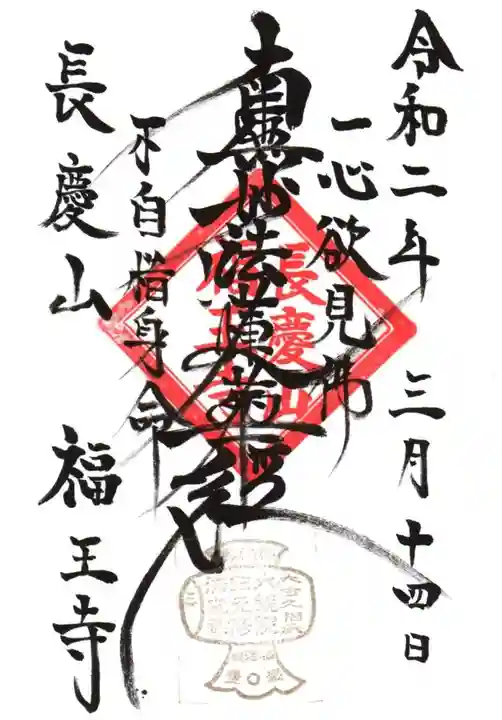 令和二年 三月十四日
一心欲見佛
南無妙法蓮華経
不自惜身命
長慶山 福王寺
長慶山
福王寺